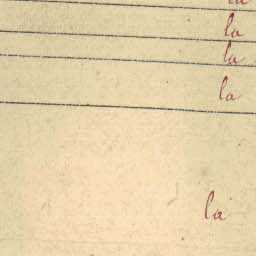 la
la
la
la